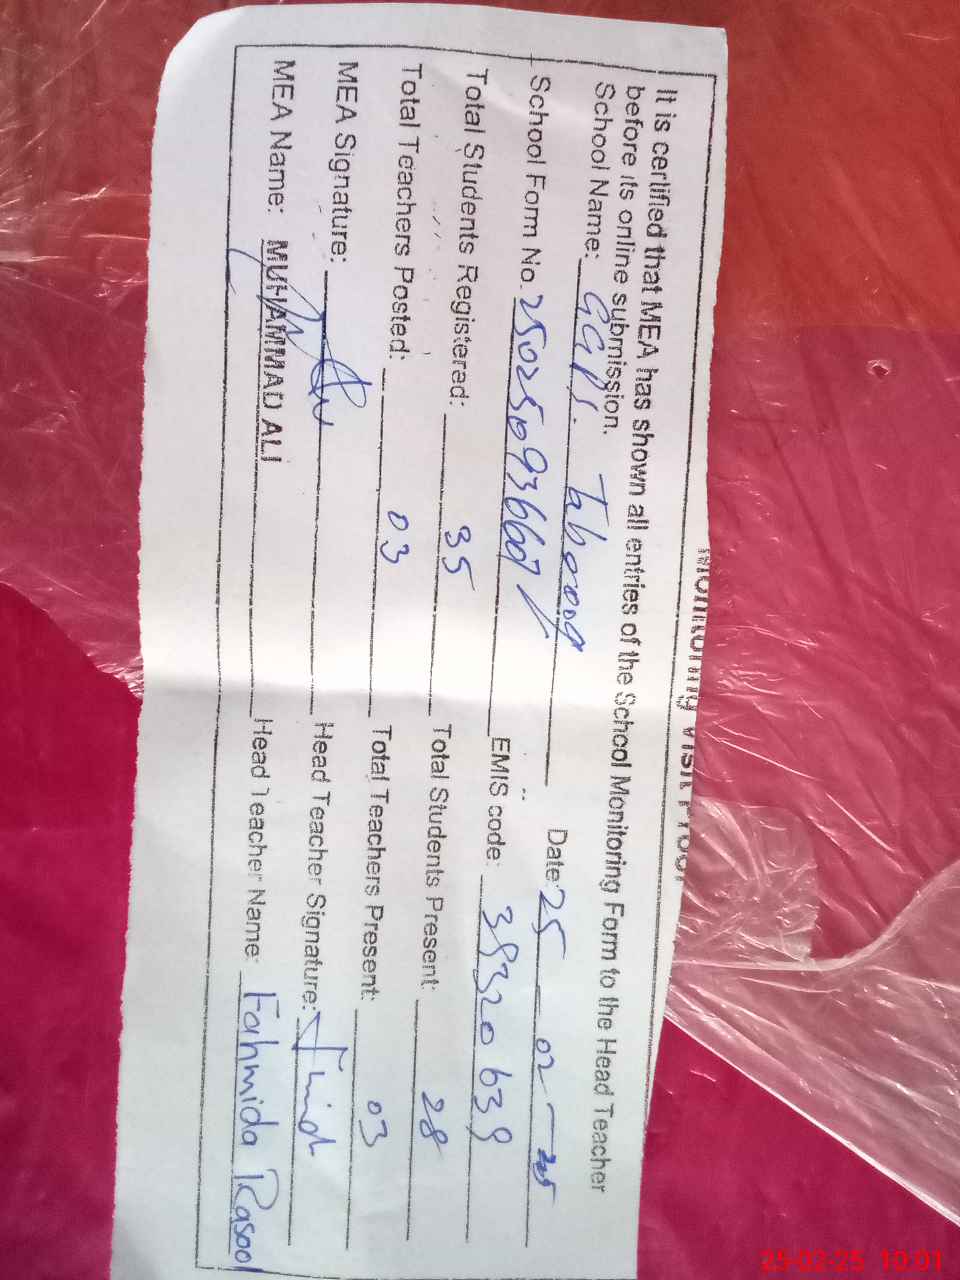 Monitoring Visit Proof
It is certified that MEA has shown all entries of the School Monitoring Form to the Head Teacher
before its online submission.
School Name: GGPS. Date: 25 02 - 2025
School Form No. EMIS code: 38320639
Total Students Registered: 35 Total Students Present: 28
Total Teachers Posted: 03 Total Teachers Present: 03
MEA Signature: Head Teacher Signature:
MEA Name: MUHAMMAD ALI Head Teacher Name: Fahmida Rasool
25-02-25 10:01